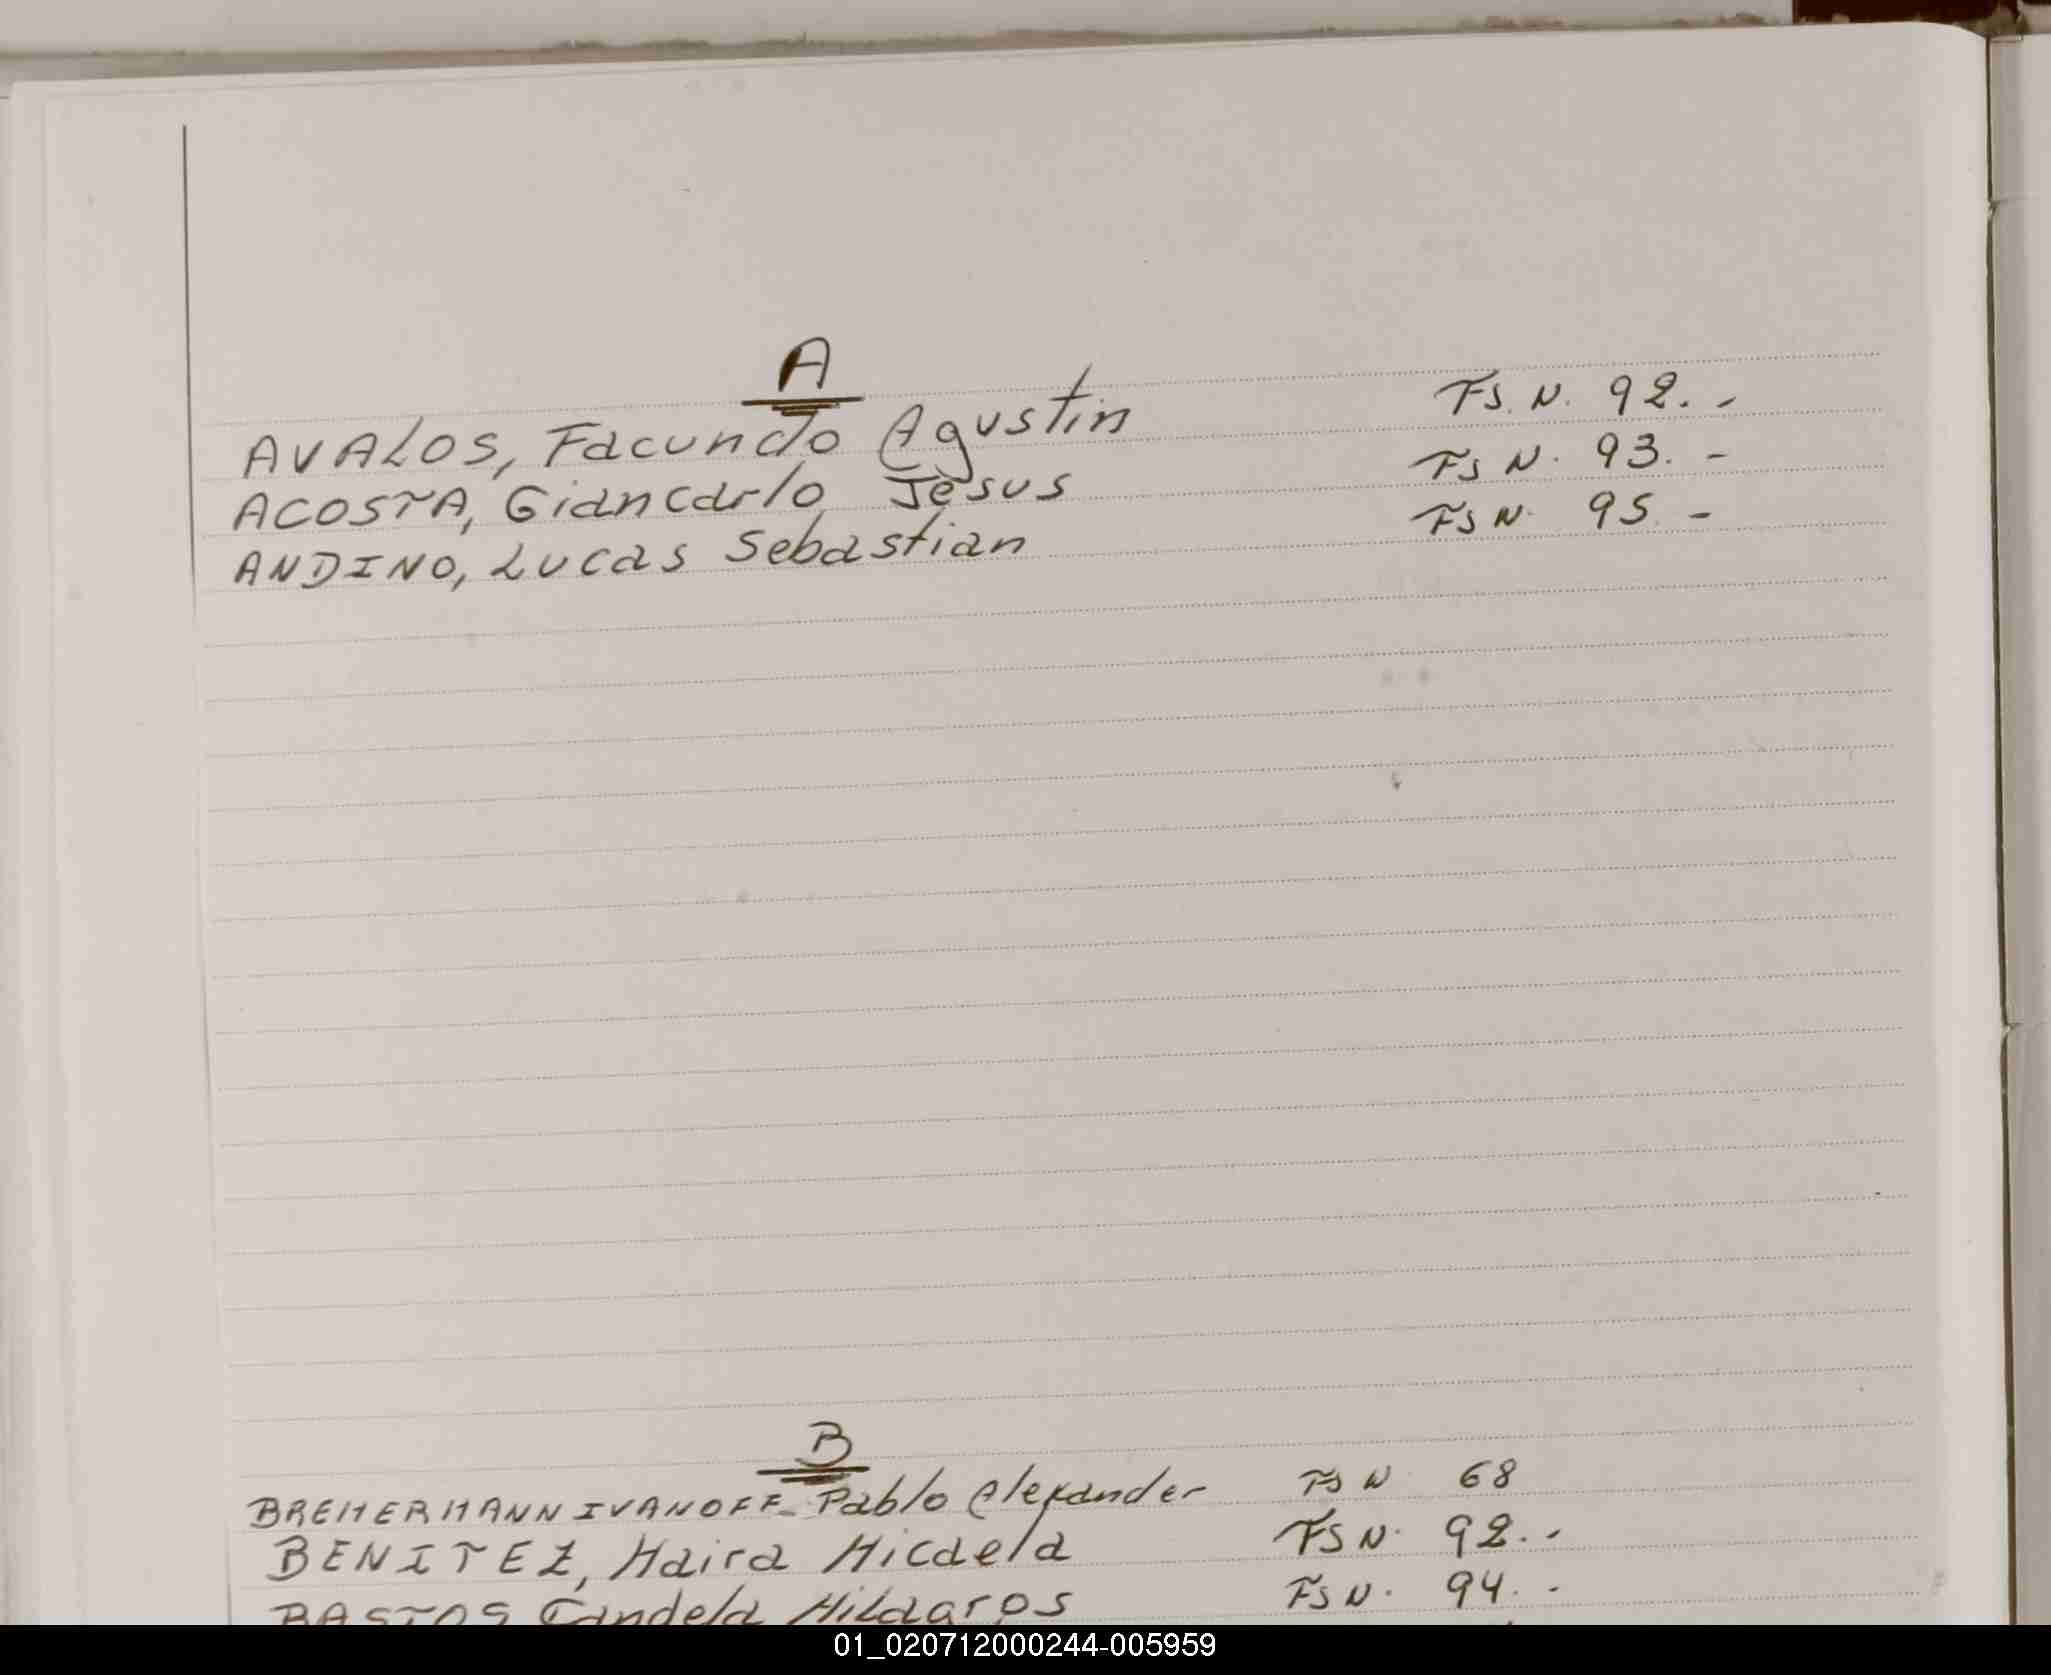 A
AVALOS, Facundo Agustin FS. N. 92. -
ACOSTA, Giancarlo Jesus FS N. 93. -
ANDINO, Lucas Sebastian FS N. 95. -
B
BREMERMANN IVANOFF - Pablo Alexander FS N 68
BENITEZ, Maira Micaela FS N. 92. -
BASTOS Candela Milagros FS N. 94. -
01_020712000244-005959